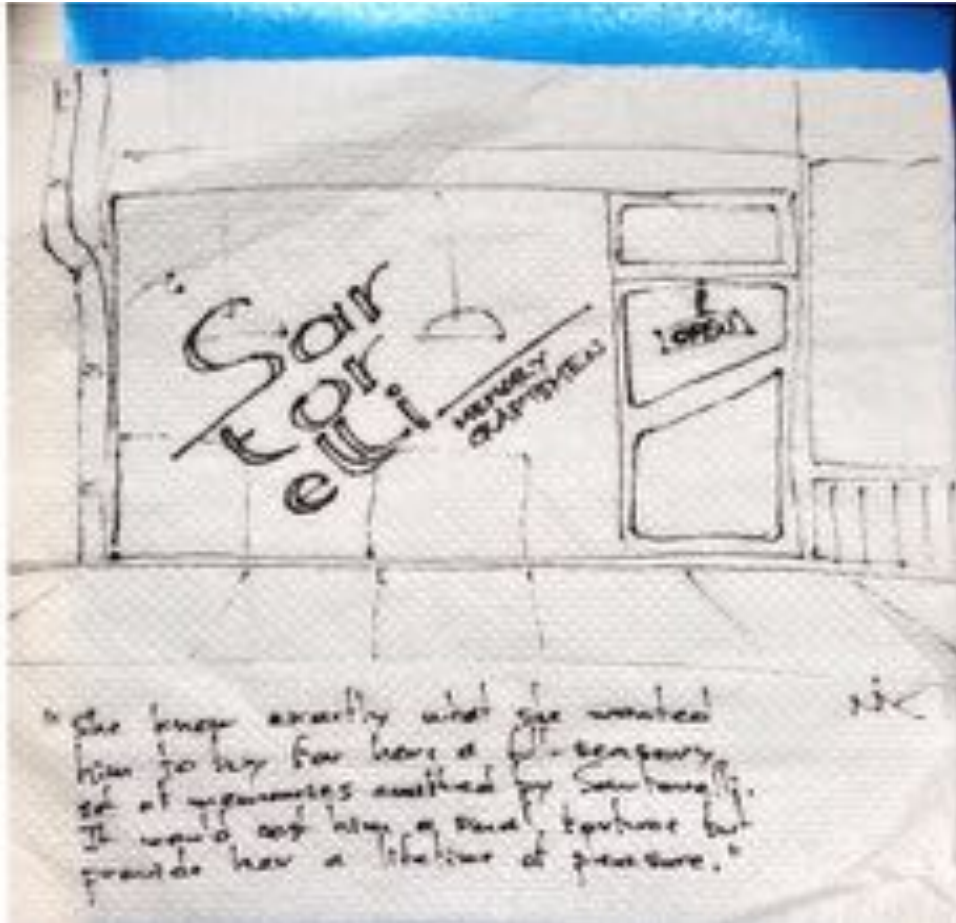 Sar
tor
elli
MEMORY
CRAFTSMEN
OPEN
nik
"She knew exactly what she wanted
him to buy for her: a full-sensory
set of memories crafted by Sartorelli.
It would cost him a small fortune but
provide her a lifetime of pleasure."